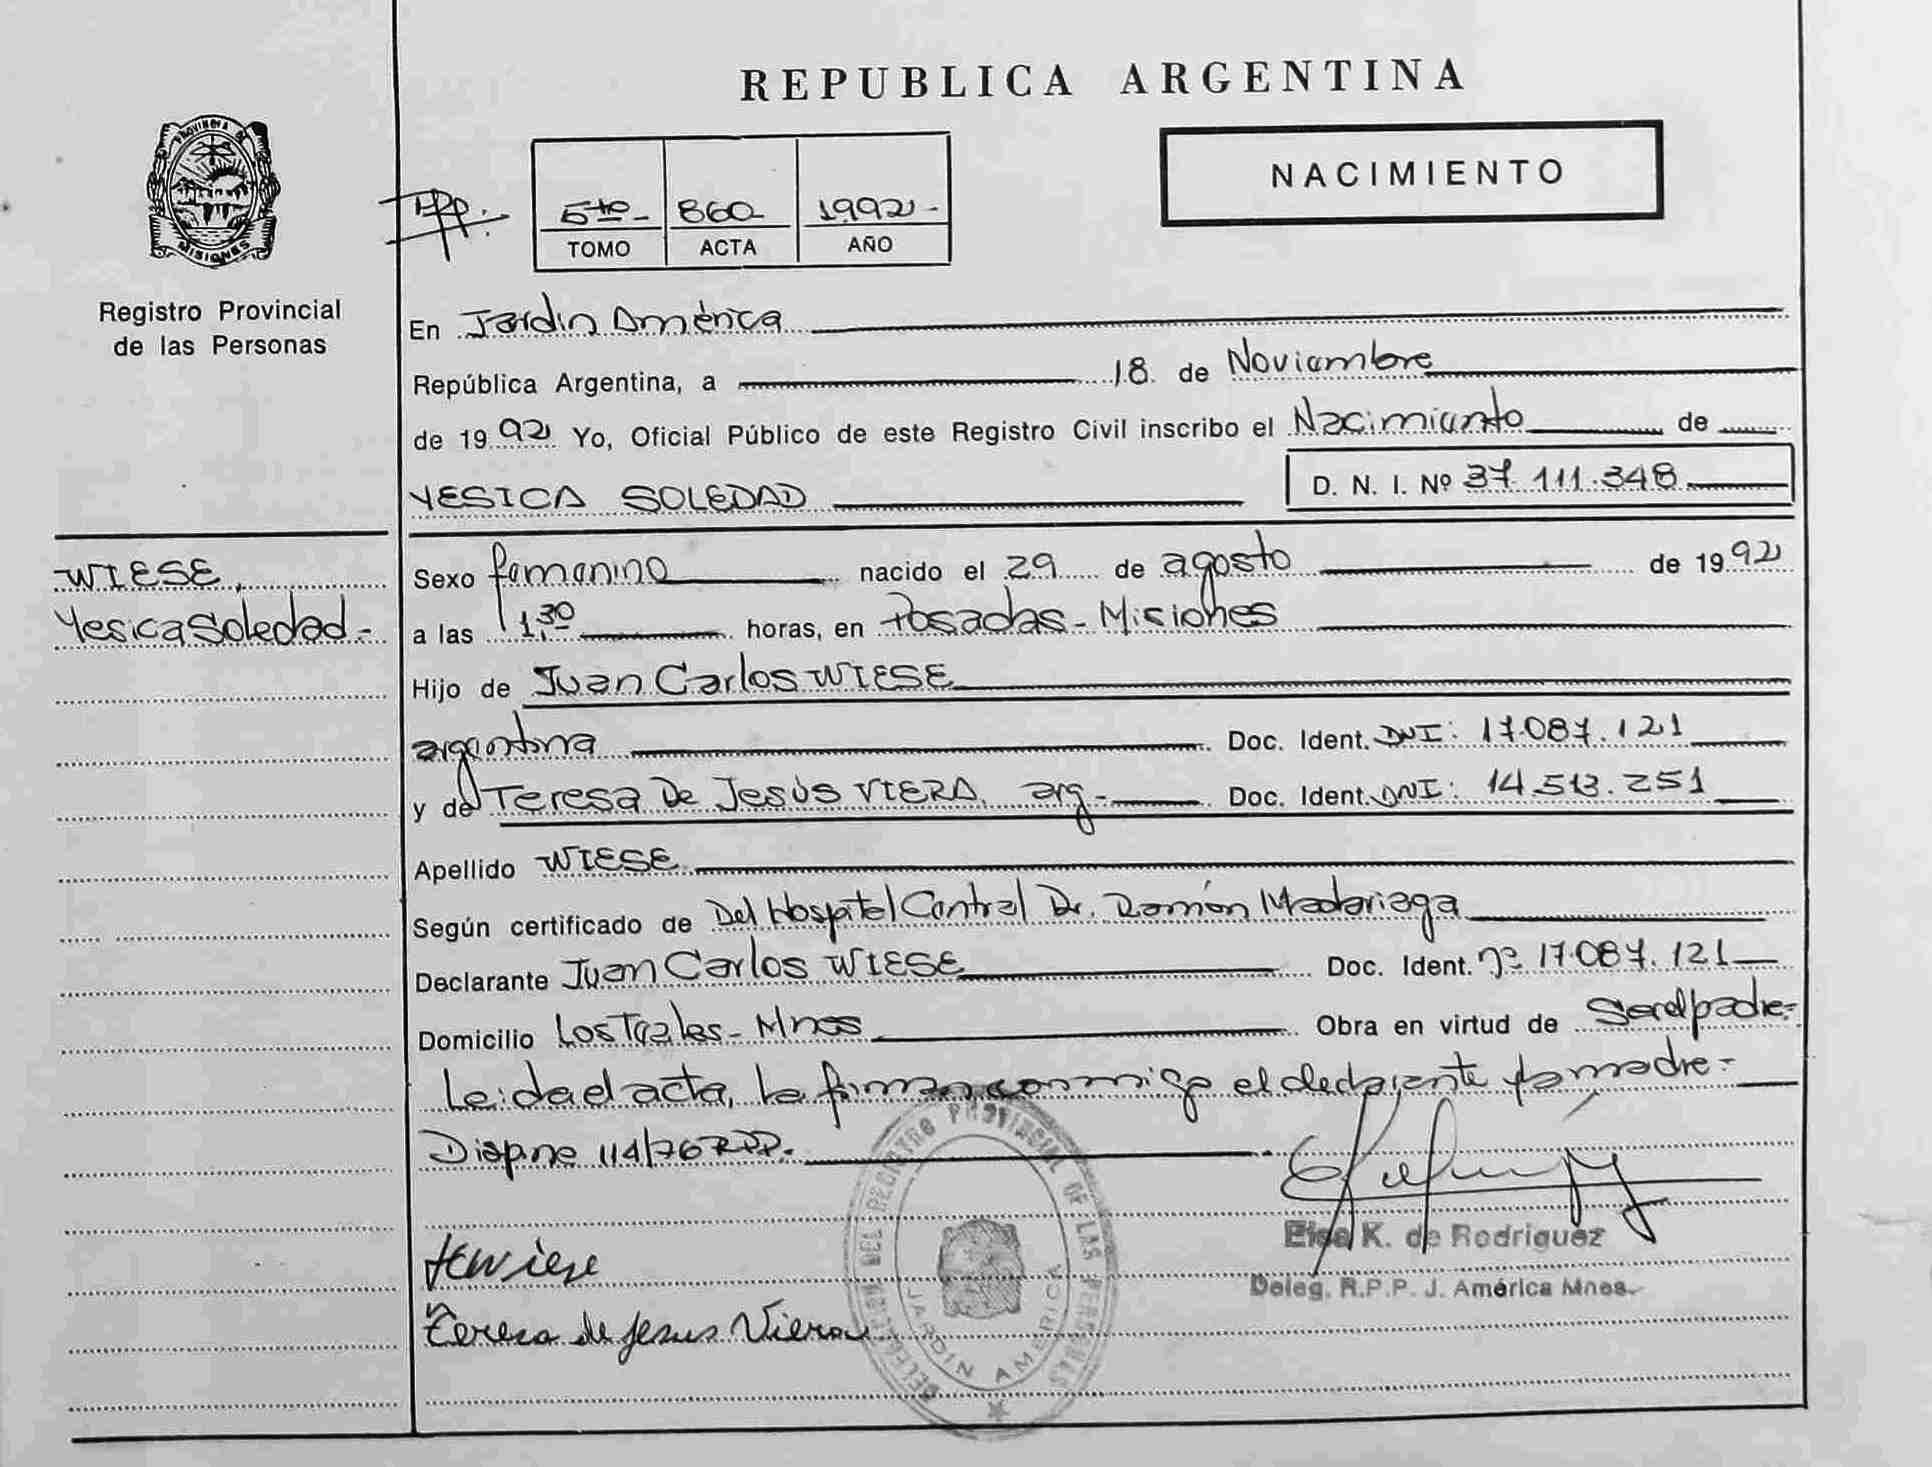 REPUBLICA ARGENTINA
NACIMIENTO
PROVINCIA DE
MISIONES
RPP.
5to 860 1992
TOMO ACTA AÑO
Registro Provincial
de las Personas
En Jardin América
República Argentina, a 18 de Noviembre
de 1992 Yo, Oficial Público de este Registro Civil inscribo el Nacimiento de
YESICA SOLEDAD D. N. I. Nº 37.111.348
WIESE,
Yesica Soledad -
Sexo femenino nacido el 29 de agosto de 1992
a las 1,30 horas, en Posadas - Misiones
Hijo de Juan Carlos WIESE
argentina Doc. Ident. DNI: 17.087.121
y de Teresa De Jesús VIERA, arg - Doc. Ident. DNI: 14.513.251
Apellido WIESE
Según certificado de Del Hospital Central Dr. Ramón Madariaga
Declarante Juan Carlos WIESE Doc. Ident. nº 17.087.121
Domicilio Los Teales - Mnes Obra en virtud de Ser el padre -
Leida el acta, la firman conmigo el declarante y la madre -
Dispne 114/76 RPP. -
Elsa K. de Rodriguez
Deleg. R.P.P. J. América Mnes.
Teresa de Jesus Viera
DELEGACION DEL REGISTRO PROVINCIAL DE LAS PERSONAS
JARDIN AMERICA